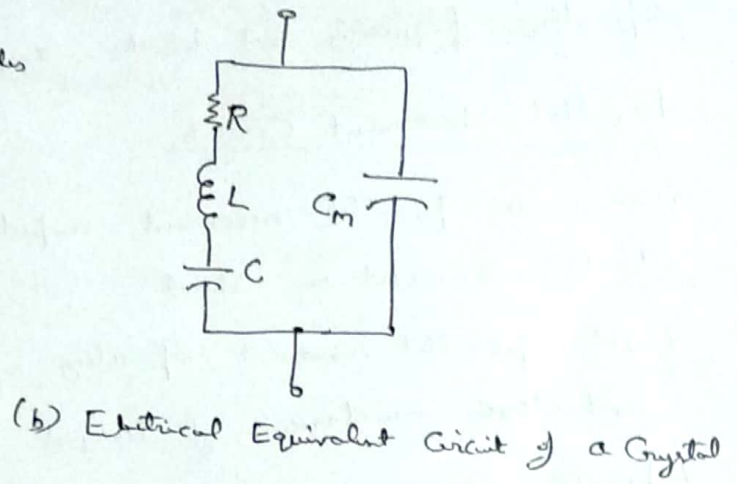 R
L
C
Cm
(b) Eletrical Equivalent Circuit of a Crystal